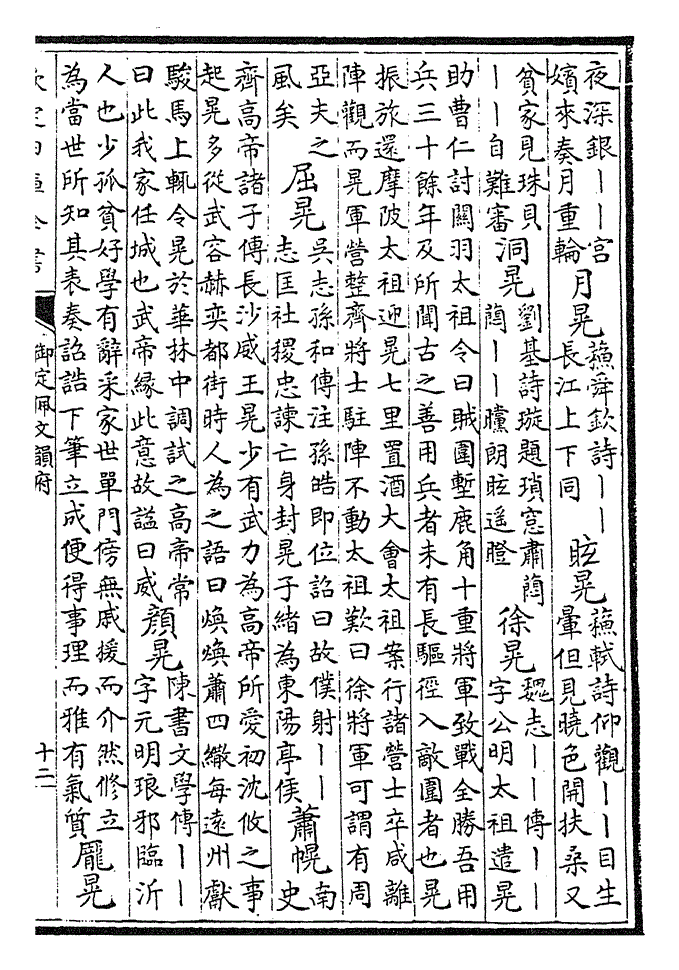 夜深銀丨丨宮
嬪來奏月重輪
月晃
蘓舜欽詩丨丨
長江上下同
眩晃
蘓軾詩仰觀丨丨目生
暈但見曉色開扶桑又
貧家見珠貝
丨丨自難審
洞晃
劉基詩璇題瑣窓肅蔄
蔄丨丨曭朗眩遥瞪
徐晃
魏志丨丨傳丨丨
字公明太祖遣晃
助曹仁討關羽太祖令曰賊圍塹鹿角十重將軍致戰全勝吾用
兵三十餘年及所聞古之善用兵者未有長驅徑入敵圍者也晃
振旅還摩陂太祖迎晃七里置酒大會太祖案行諸營士卒咸離
陣觀而晃軍營整齊將士駐陣不動太祖歎曰徐將軍可謂有周
亞夫之
風矣
屈晃
吳志孫和傳注孫皓即位詔曰故僕射丨丨
志匡社稷忠諫亡身封晃子緒為東陽亭侯
蕭幌
南
史
齊高帝諸子傳長沙威王晃少有武力為高帝所愛初沈攸之事
起晃多從武容赫奕都街時人為之語曰煥煥蕭四繖每遠州獻
駿馬上輒令晃於華林中調試之高帝常
曰此我家任城也武帝緣此意故諡曰威
顔晃
陳書文學傳丨丨
字元明琅邪臨沂
人也少孤貧好學有辭采家世單門傍無戚援而介然修立
為當世所知其表奏詔誥下筆立成便得事理而雅有氣質
龐晃
欽定四庫全書
御定佩文韻府
十二